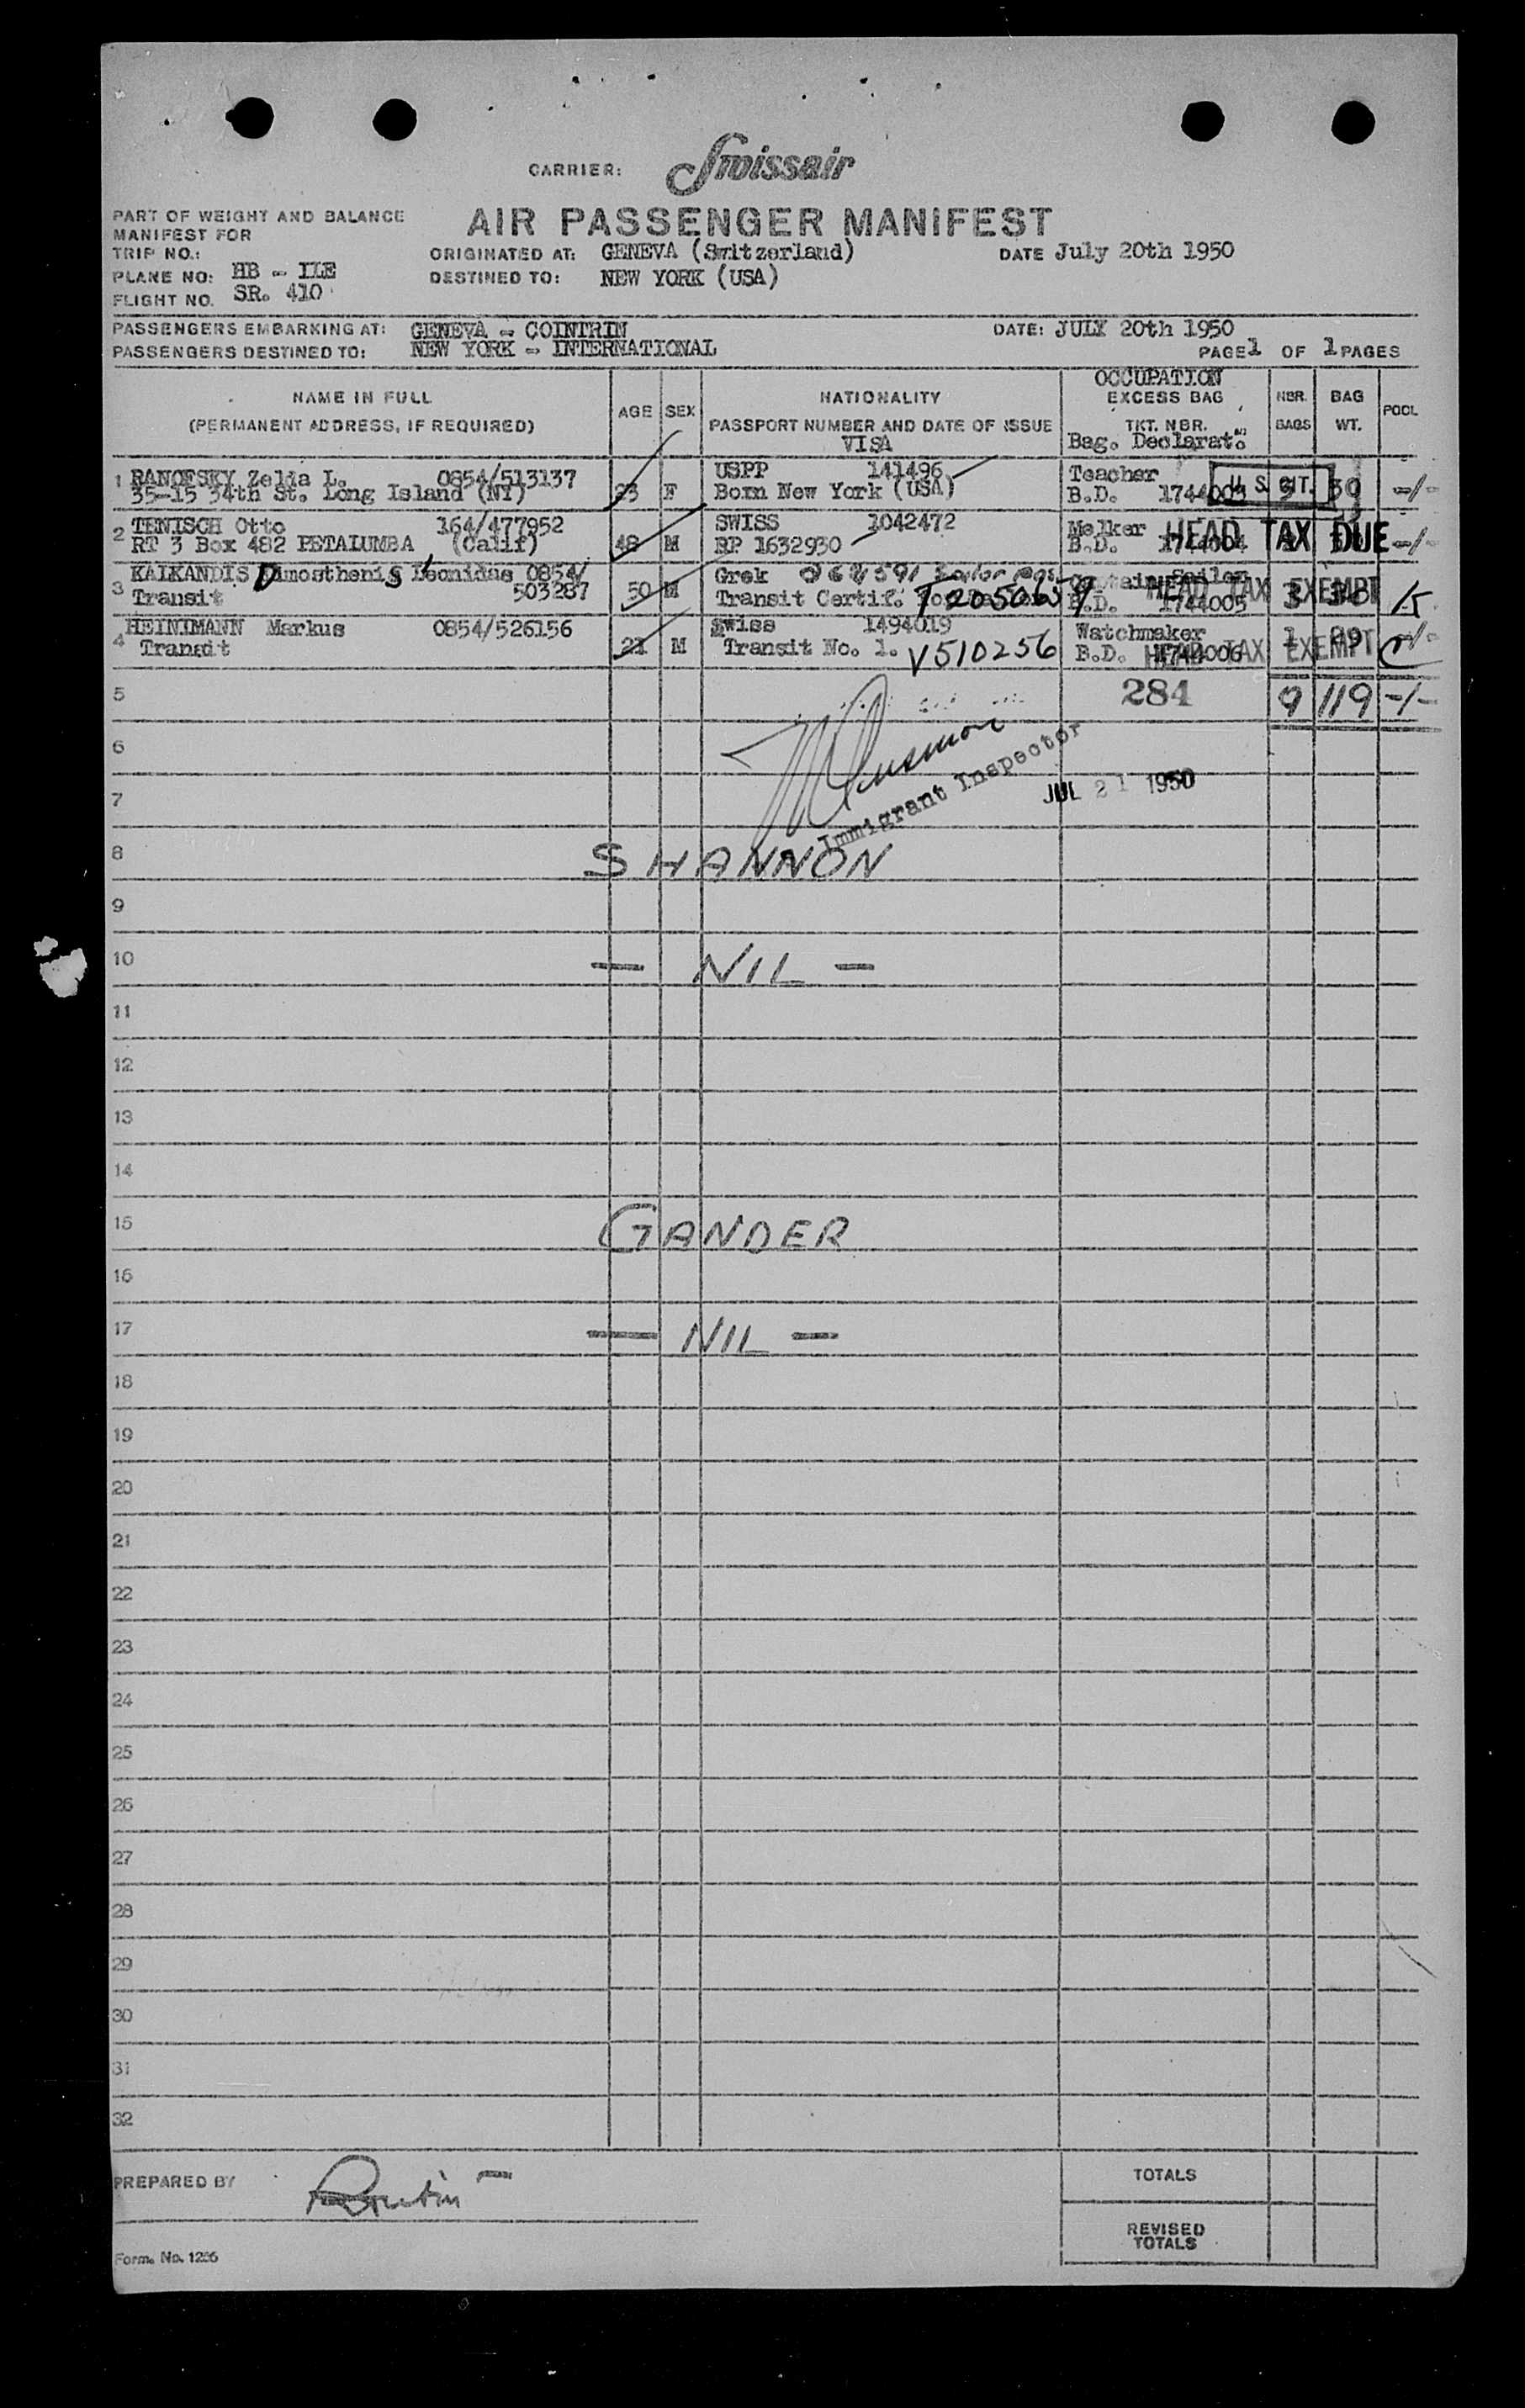 CARRIER: Swissair
AIR PASSENGER MANIFEST
PART OF WEIGHT AND BALANCE
MANIFEST FOR
TRIP NO.:
ORIGINATED AT: GENEVA (Switzerland)
DATE July 20th 1950
PLANE NO: HB - ILE
DESTINED TO: NEW YORK (USA)
FLIGHT NO. SR. 410
PASSENGERS EMBARKING AT: GENEVA - COINTRIN
DATE: JULY 20th 1950
PASSENGERS DESTINED TO: NEW YORK - INTERNATIONAL
PAGE 1 OF 1 PAGES
NAME IN FULL
(PERMANENT ADDRESS, IF REQUIRED)
AGE
SEX
NATIONALITY
PASSPORT NUMBER AND DATE OF ISSUE
VISA
OCCUPATION
EXCESS BAG
TKT. NBR.
Bag. Declarat.
NBR. BAGS
BAG WT.
POOL
1 RANOFSKY Zelda L. 0854/513137
35-15 34th St. Long Island (NY)
23 F
USPP 141496
Born New York (USA)
Teacher
B.D. 1744003
U. S. CIT.
30 -/-
2 TENISCH Otto 164/477952
RT 3 Box 482 PETALUMBA (Calif)
48 M
SWISS 1042472
RP 1632930
Melker
B.D. 1744004
HEAD TAX DUE
-/-
3 KALKANDIS Dimosthenis Leonidas 0854/
Transit 503287
50 M
Grek
Transit Certif. T205065
Captain Sailor
B.D. 1744005
HEAD TAX EXEMPT
3 K
4 HEINIMANN Markus 0854/526156
Transit
21 M
Swiss 1494019
Transit No. 1. V510256
Watchmaker
B.D. 1744006
HEAD TAX EXEMPT
1 29 -/-
5
284
9 119 -/-
6
Immigrant Inspector
7
JUL 21 1950
8
SHANNON
9
10
- NIL -
11
12
13
14
15
GANDER
16
17
- NIL -
18
19
20
21
22
23
24
25
26
27
28
29
30
31
32
PREPARED BY
TOTALS
REVISED
TOTALS
Form. No. 1256